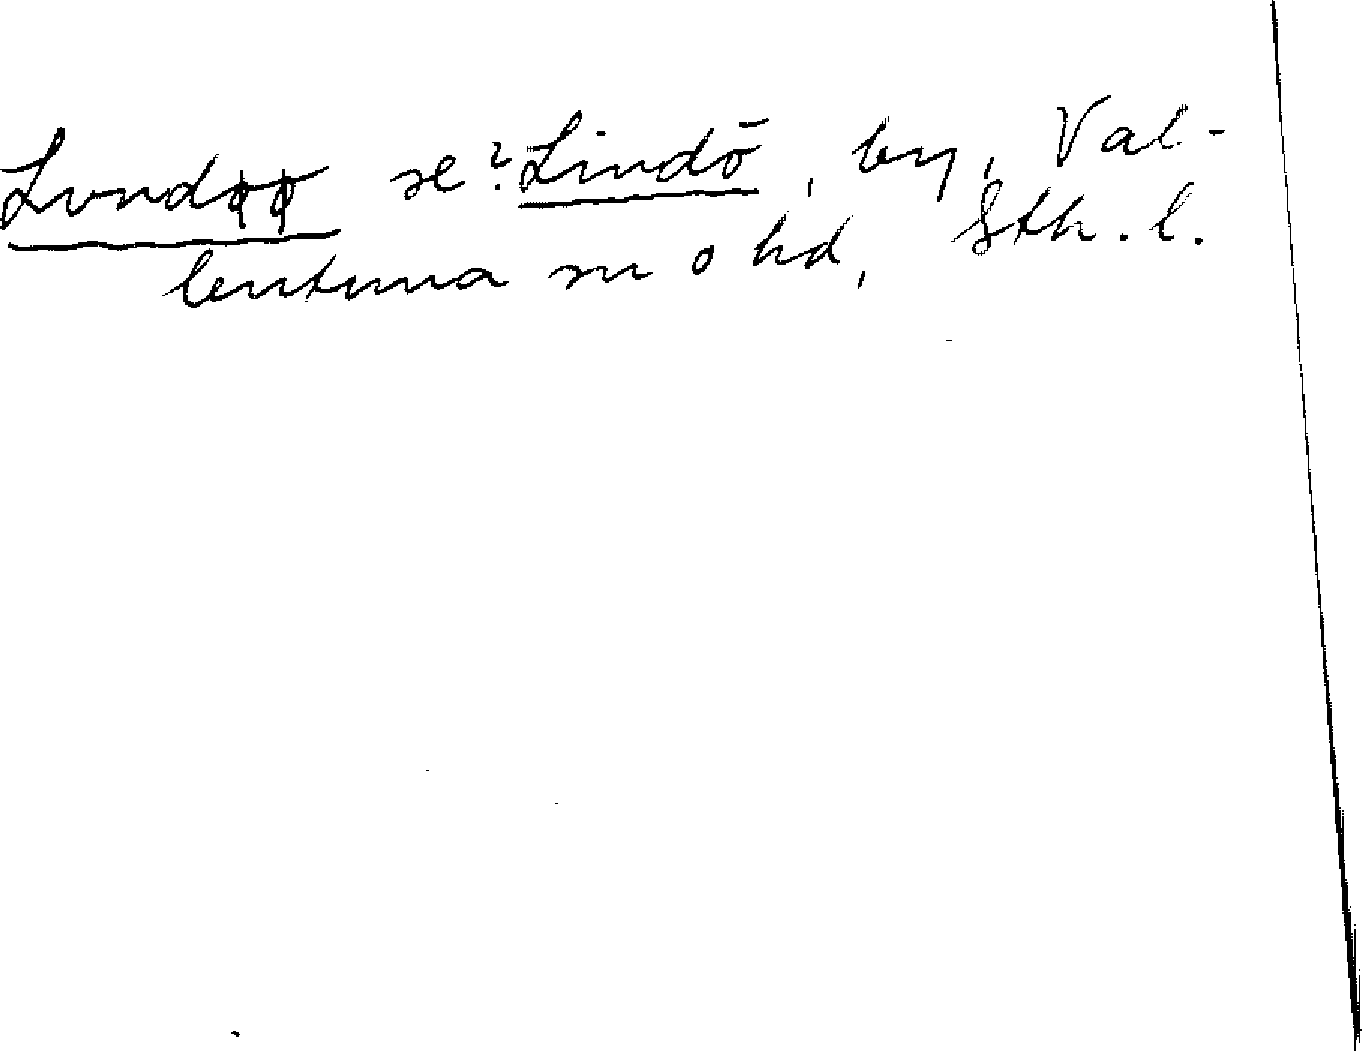 Lvndøø se? Lindö, by, Val-
lentuna sn o hd, Sth. l.